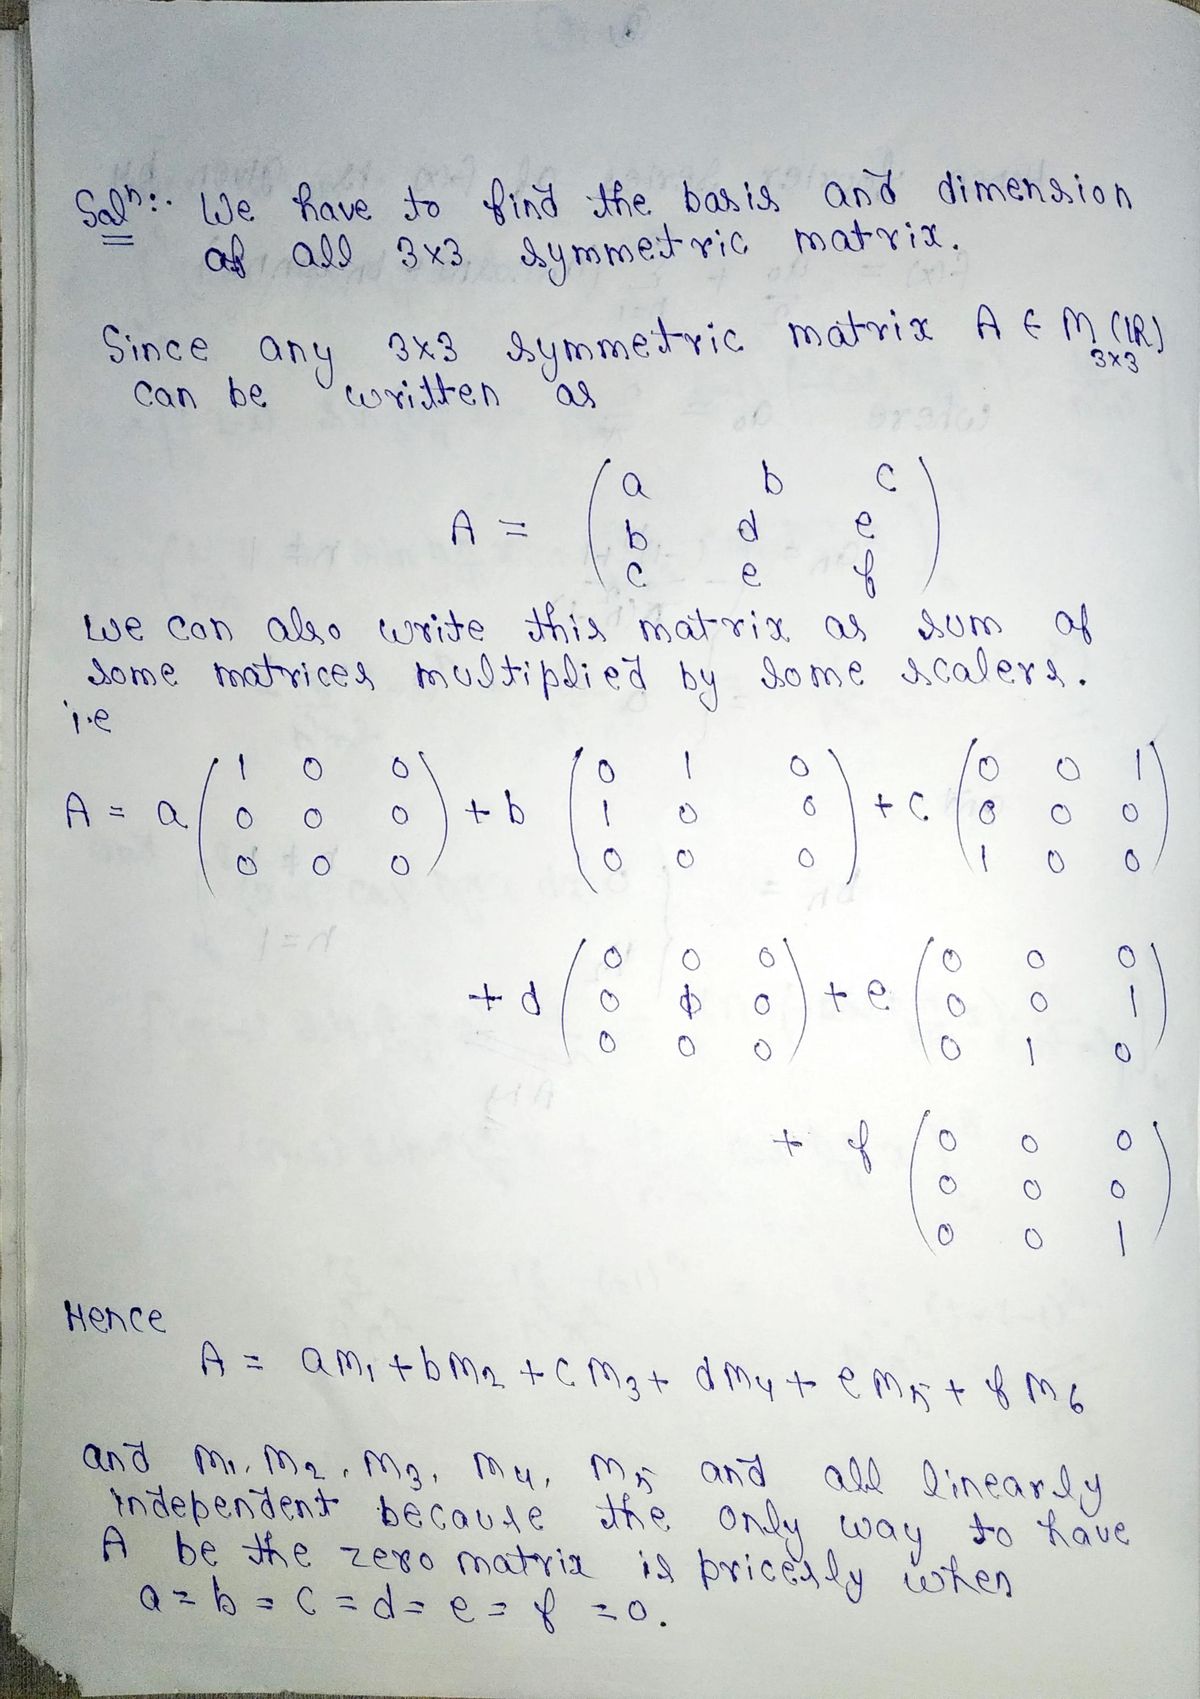 Solⁿ:- We have to find the basis and dimension
of all 3×3 symmetric matrix.
Since any 3×3 symmetric matrix A ∈ M (IR)
3×3
can be written as
A = ( a b c
b d e
c e f )
we can also write this matrix as sum of
some matrices multiplied by some scalers.
i.e
A = a ( 1 0 0 ) + b ( 0 1 0 ) + c ( 0 0 1 )
( 0 0 0 ) ( 1 0 0 ) ( 0 0 0 )
( 0 0 0 ) ( 0 0 0 ) ( 1 0 0 )
+ d ( 0 0 0 ) + e ( 0 0 0 )
( 0 1 0 ) ( 0 0 1 )
( 0 0 0 ) ( 0 1 0 )
+ f ( 0 0 0 )
( 0 0 0 )
( 0 0 1 )
Hence
A = aM₁ + bM₂ + cM₃ + dM₄ + eM₅ + fM₆
and M₁, M₂, M₃, M₄, M₅ and all linearly
independent because the only way to have
A be the zero matrix is pricesly when
a = b = c = d = e = f = 0.